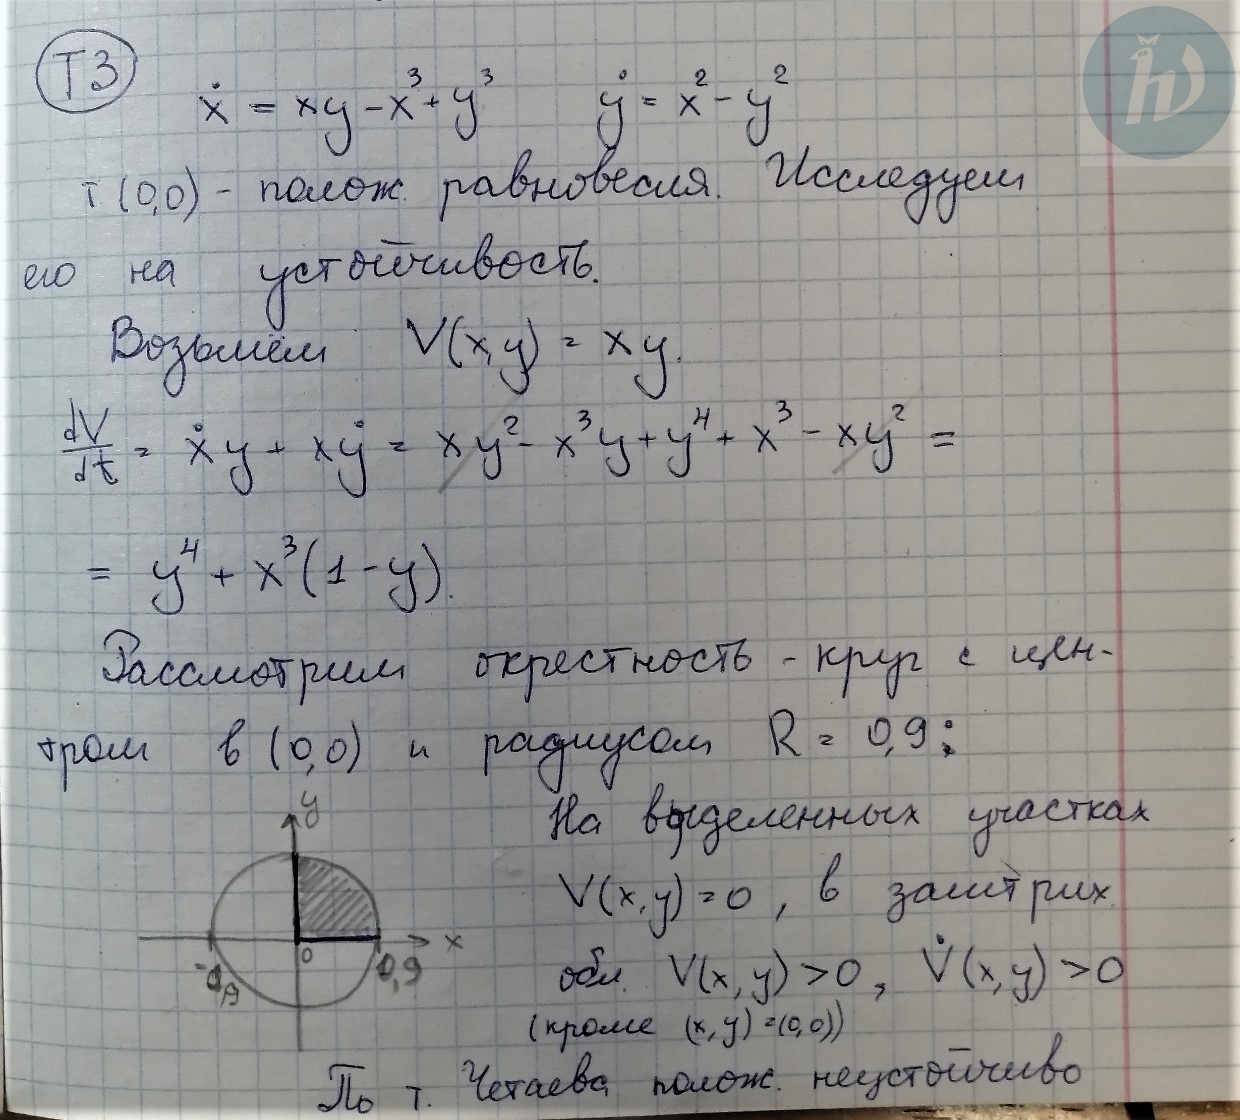 Т3
ẋ = xy - x³ + y³ ẏ = x² - y²
т (0,0) - полож. равновесия. Исследуем
его на устойчивость.
Возьмём V(x,y) = xy.
dV/dt = ẋy + xẏ = xy² - x³y + y⁴ + x³ - xy² =
= y⁴ + x³(1-y).
Рассмотрим окрестность - круг с цен-
тром в (0,0) и радиусом R = 0,9:
y
На выделенных участках
V(x,y)=0, в заштрих.
0 x
-0,9 0,9
обл. V(x,y)>0, V̇(x,y)>0
(кроме (x,y)=(0,0))
По т. Четаева полож. неустойчиво